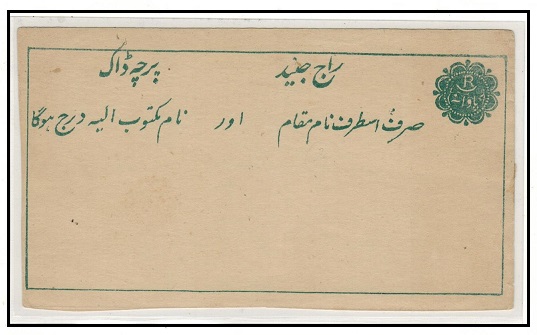 راج جنید پرچہ ڈاک
R
صرف اسطرف نام مقام اور نام مکتوب الیہ درج ہوگا